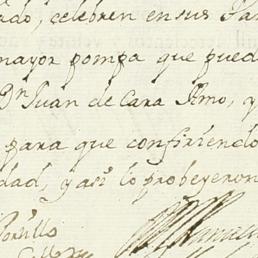 ado, celebren en sus
mayor pompa que pued
Dn Juan de Cara Amo, y
para que confiriendo
dad, y asi lo probeyeron